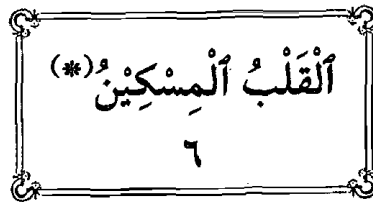 ٱلْقَلْبُ ٱلْمِسْكِيْنُ (*)
٦